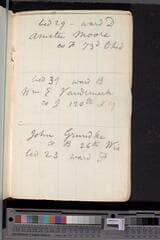 bed 29 - ward D
Amster Moore
co F 73d Ohio
bed 37 ward B
Wm E Vandermark
co I 120th N.Y
John Grundke
co B 26th Wis
bed 23 ward F